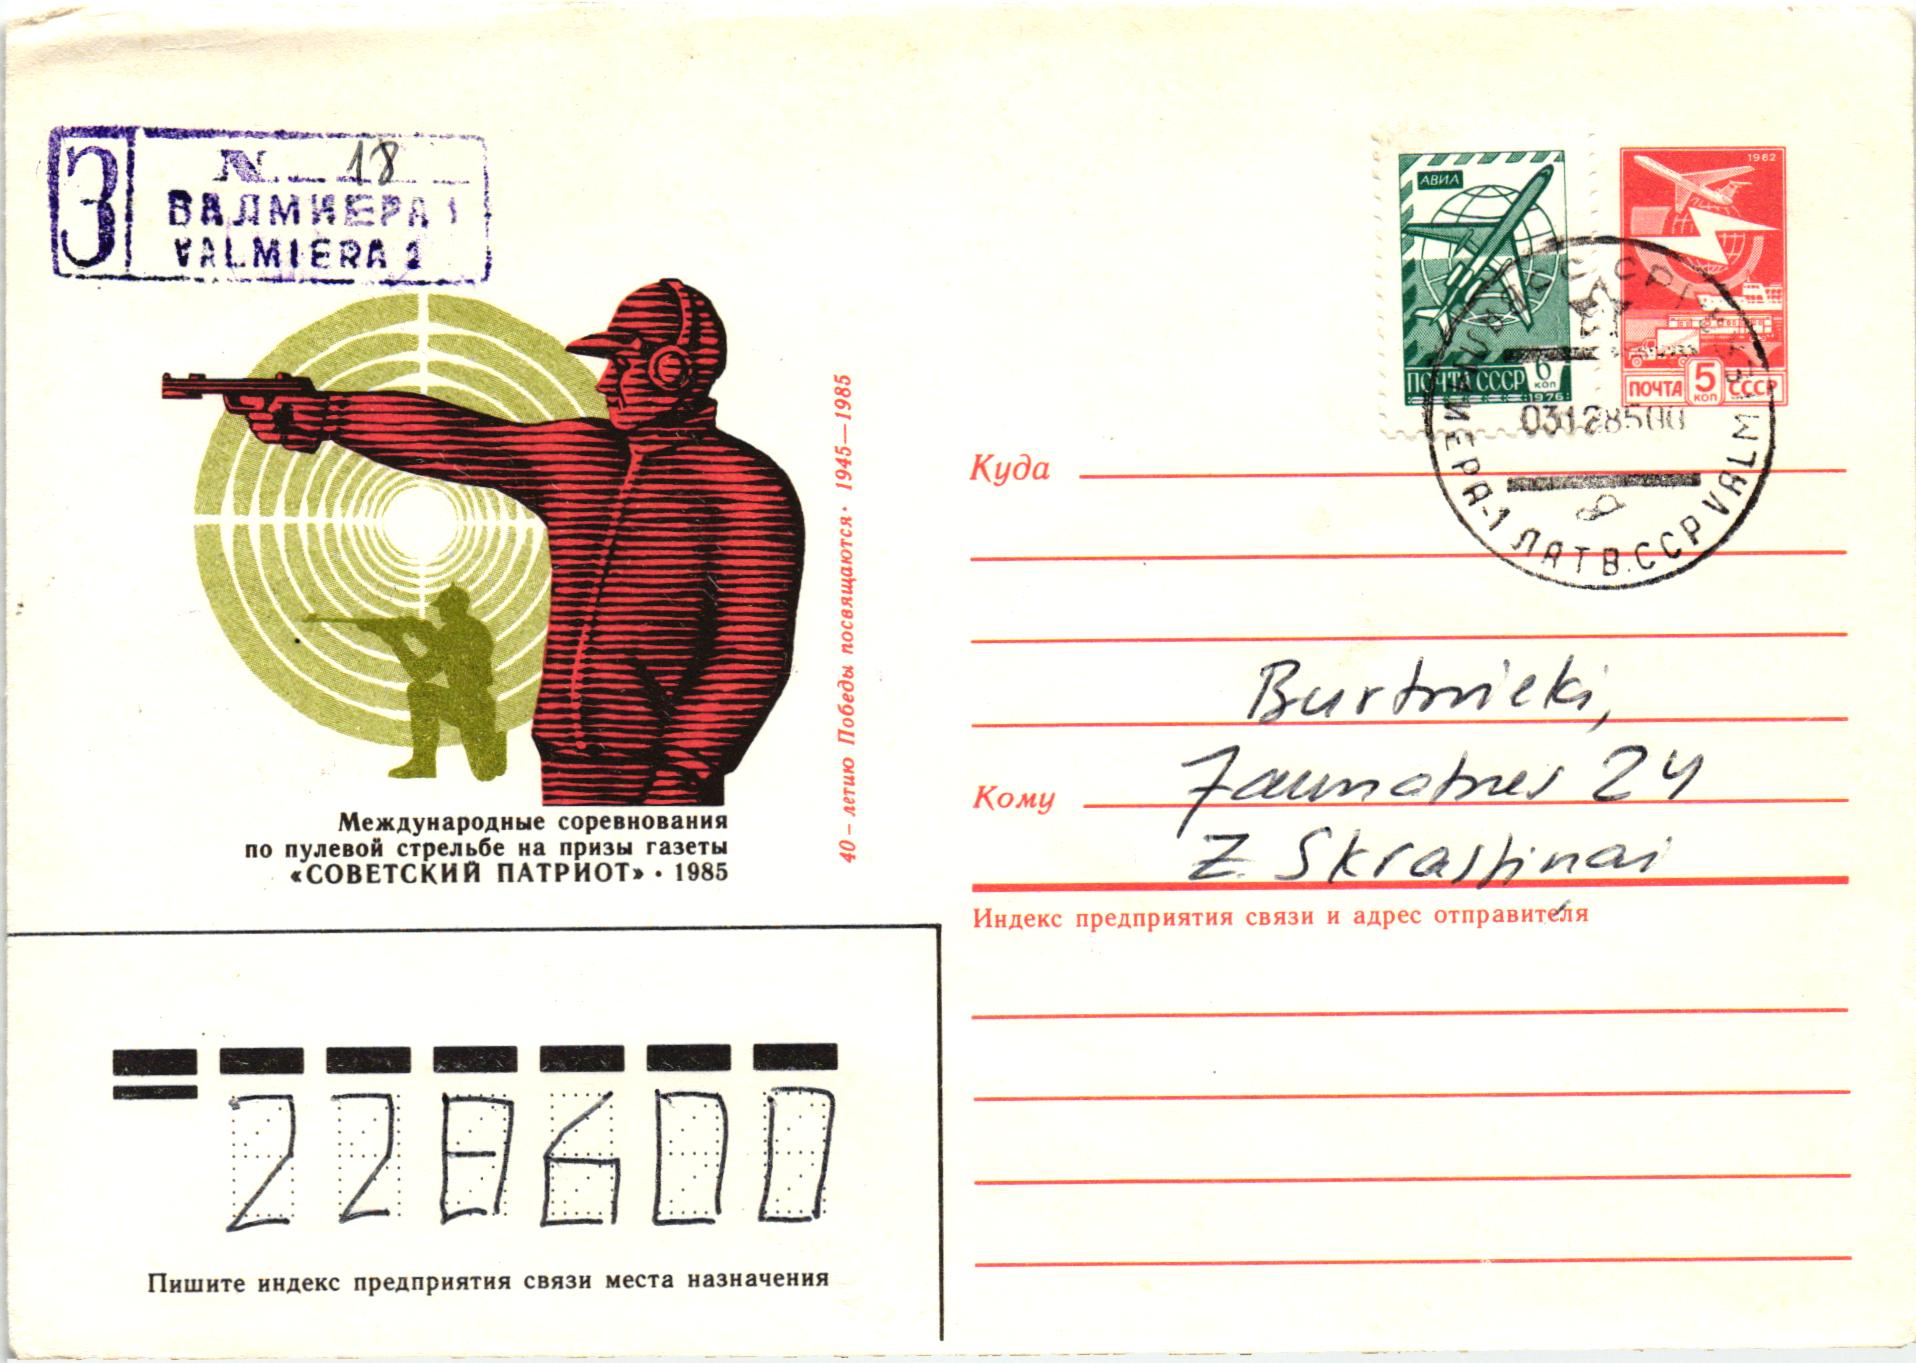 З
N 18
ВАЛМИЕРА 1
VALMIERA 1
АВИА
ПОЧТА СССР 6 КОП
1976
1982
ПОЧТА 5 КОП СССР
ВАЛМИЕРА-1 ЛАТВ.ССР VALMIERA
03128500
40-летию Победы посвящаются· 1945—1985
Международные соревнования
по пулевой стрельбе на призы газеты
«СОВЕТСКИЙ ПАТРИОТ» · 1985
Куда
Burtnieki,
Кому Jaunatnes 24
Z. Skrastiņai
Индекс предприятия связи и адрес отправителя
228600
Пишите индекс предприятия связи места назначения